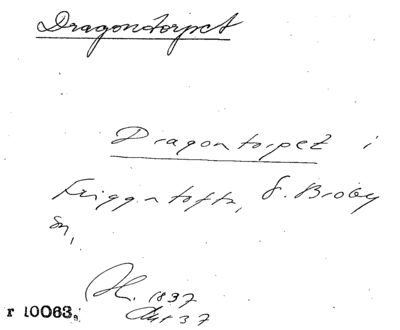 Dragontorpet
Dragontorpet i
Friggatofta, Ö. Broby
sn,
1897
37
r 10063.